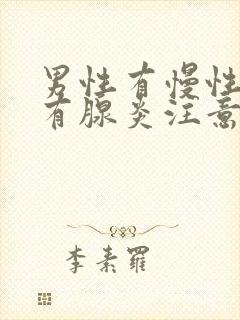 男性有慢性
有腺炎注意
李素羅